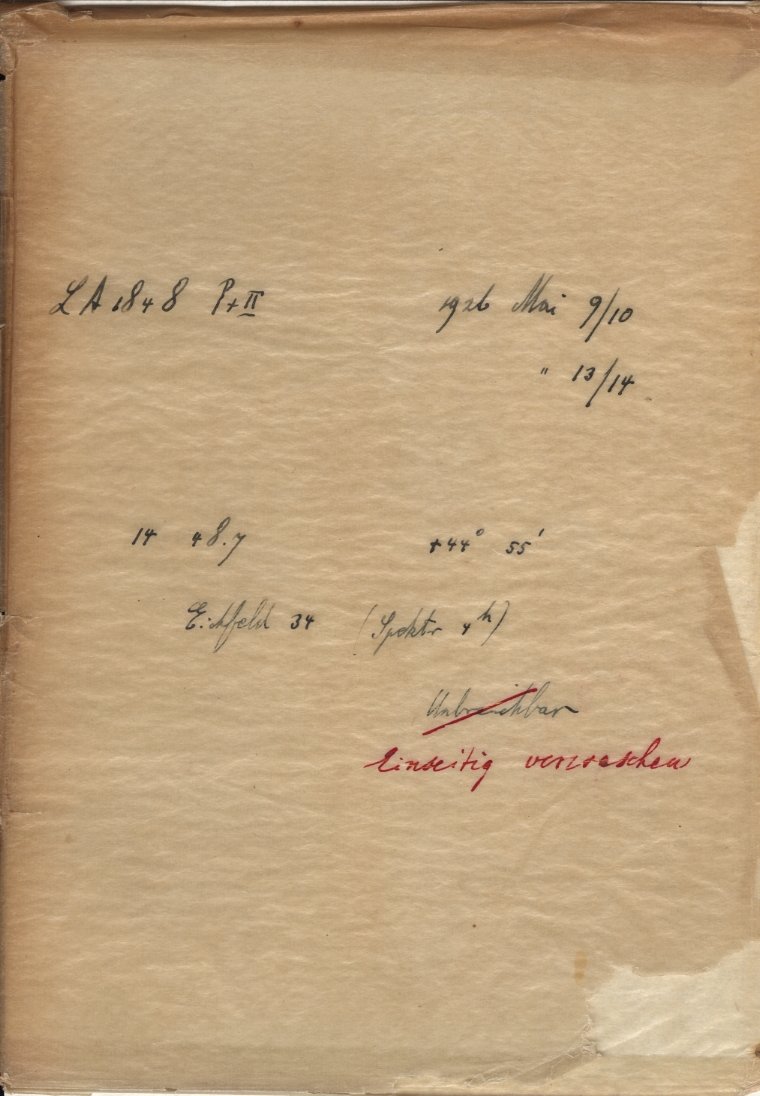 LA 1848 P+II 1926 Mai 9/10
" 13/14
14 48.7 +44° 55'
Eichfeld 34 (Spektr 4h)
Unbrauchbar
Einseitig verwaschen